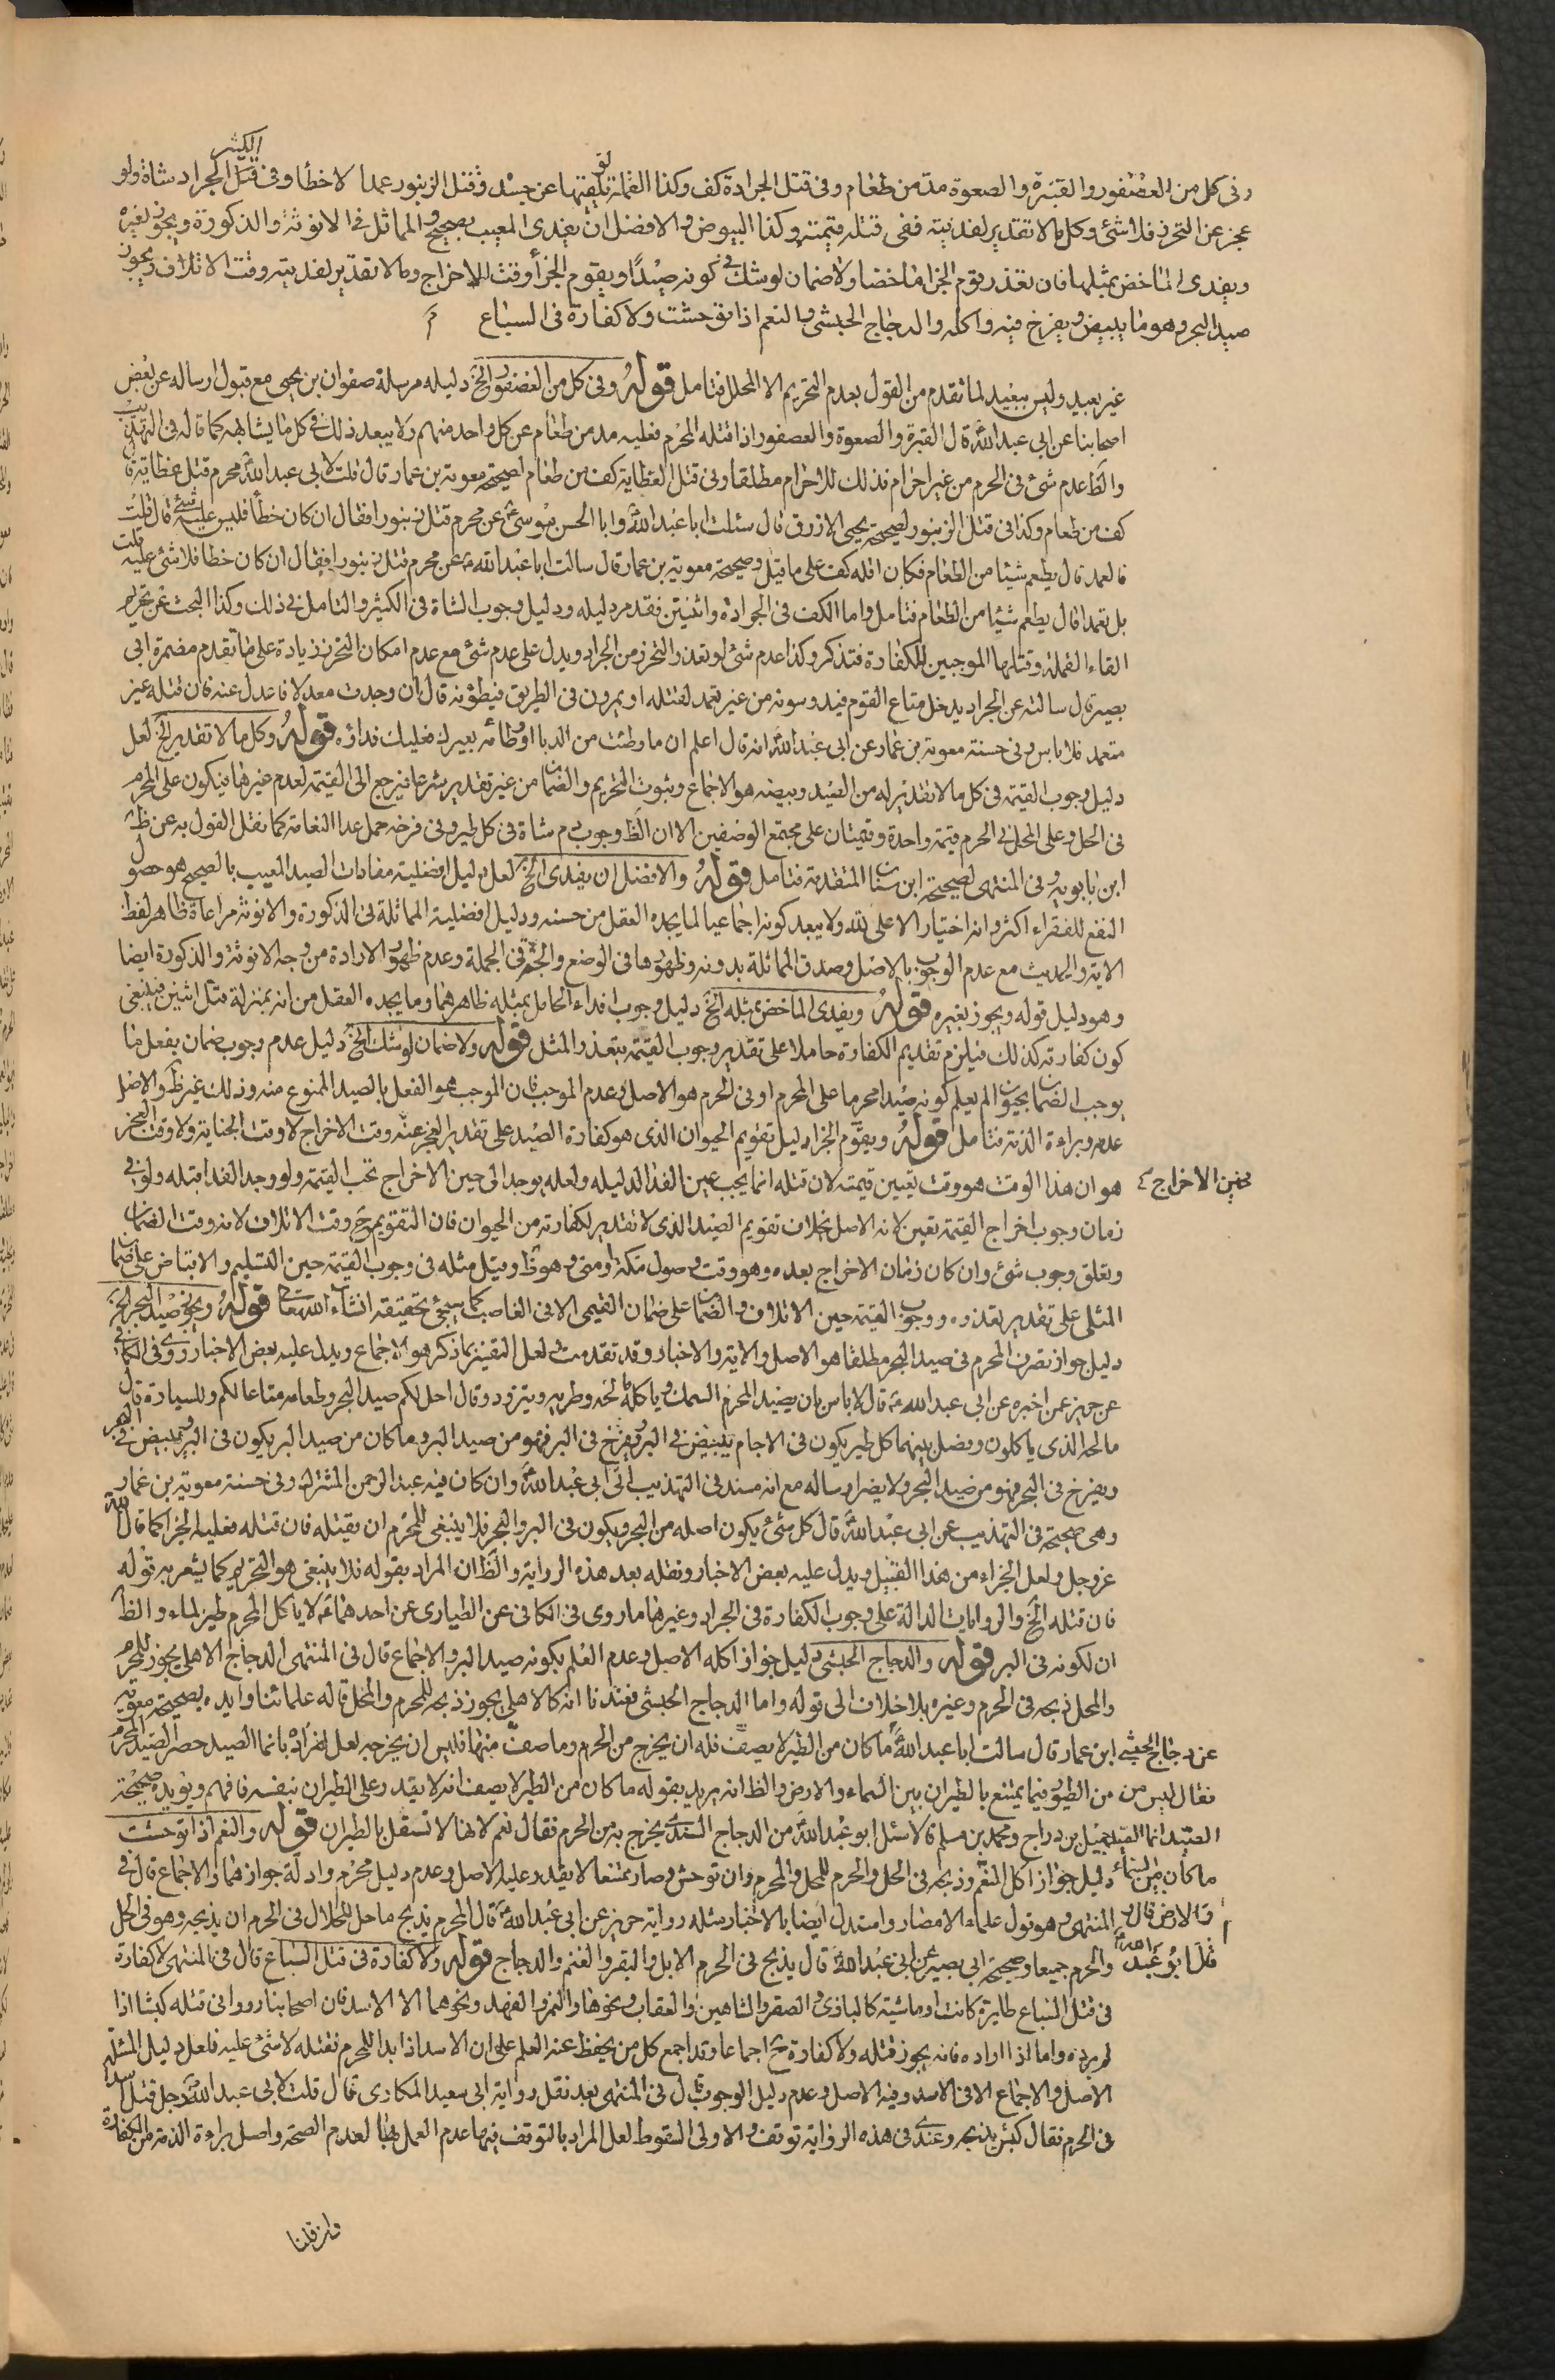 الكثير
وفى كل من العصفور والقبرة والصعوة مد من طعام وفى قتل الجرادة كف وكذا القملة يلقيها عن جسده وقتل الزنبور عمدا لا خطأ وفى قتل الجراد شاة ولو
عجز عن التحرز فلا شئ وكل ما لا تقدير لفديته ففى قتله قيمته وكذا البيوض والافضل ان يفدى المعيب بصحيح والمماثل فى الانوثة والذكورة ويجوز بغيره
ويفدى الماخض بمثلها فان تعذر قوم الجزا ماخضا ولا ضمان لو شك فى كونه صيدا ويقوم الجزأ وقت الاخراج وما لا تقدير لفديته وقت الاتلاف ويجوز
صيد البحر وهو ما يبيض ويفرخ فيه واكله والدجاج الحبشى والنعم اذا توحشت ولا كفارة فى السباع
غير بعيد وليس ببعيد لما تقدم من القول بعدم التحريم الا المحلل فتامل قوله وفى كل من العصفور الخ دليله مرسلة صفوان بن يحيى مع قبول ارساله عن بعض
اصحابنا عن ابى عبد الله قال القبرة والصعوة والعصفور اذا قتله المحرم فعليه مد من طعام عن كل واحد منهم ولا يبعد ذلك فى كل ما يشابهه كما قاله فى التهذيب
والظ عدم شئ فى الحرم من غير احرام فذلك للاحرام مطلقا وفى قتل العظاية كف من طعام لصحيحة معوية بن عمار قال قلت لابى عبد الله محرم قتل عظاية قال
كف من طعام وكذا فى قتل الزنبور لصحيحة يحيى الازرق قال سئلت ابا عبد الله وابا الحسن موسى عن محرم قتل زنبورا فقال ان كان خطأ فليس عليه شئ قال قلت
فالعمد قال يطعم شيئا من الطعام فكان اقله كف على ما قيل وصحيحة معوية بن عمار قال سالت ابا عبد الله عن محرم قتل زنبورا فقال ان كان خطا فلا شئ عليه قلت
بل تعمدا قال يطعم شيئا من الطعام فتامل واما الكف فى الجرادة واثنتين فقد مر دليله ودليل وجوب الشاة فى الكثير والتامل فى ذلك وكذا البحث عن تحريم
القاء القملة وقتلها الموجبين للكفارة فتذكر وكذا عدم شئ لو تعذر التحرز من الجراد ويدل على عدم شئ مع عدم امكان التحرز زيادة على ما تقدم مضمرة ابى
بصير قال سالته عن الجراد يدخل متاع القوم فيدوسونه من غير تعمد لقتله او يمرون فى الطريق فيطؤنه قال ان وجدت معدلا فاعدل عنه فان قتله غير
متعمد فلا باس وفى حسنة معوية بن عمار عن ابى عبد الله انه قال اعلم ان ما وطئت من الدبا او وطائه بعيرك فعليك فداؤه قوله وكل ما لا تقدير الخ لعل
دليل وجوب القيمة فى كل ما لا تقدير له من الصيد وبيضه هو الاجماع وثبوت التحريم والضمان من غير تقدير شرعا فيرجع الى القيمة لعدم غيرها فيكون على المحرم
فى الحل وعلى المحل فى الحرم قيمة واحدة وقيمتان على مجتمع الوصفين الا ان الظ وجوب دم شاة فى كل طير وفى فرخه حمل عدا النعامة كما نقل القول به عن ظ
ابن بابويه وفى المنتهى لصحيحة ابن سنان المتقدمة فتامل قوله والافضل ان يفدى الخ لعل دليل افضلية مفادات الصيد المعيب بالصحيح هو حصول
النفع للفقراء اكثر وانه اختيار الاعلى لله ولا يبعد كونه اجماعيا لما يجده العقل من حسنه ودليل افضلية المماثلة فى الذكورة والانوثة مراعاة ظاهر لفظ
الاية والحديث مع عدم الوجوب بالاصل وصدق المماثلة بدونه وظهورها فى الوضع والجثة فى الجملة وعدم ظهور الارادة من وجه الانوثة والذكورة ايضا
وهو دليل قوله ويجوز بغيره قوله ويفدى الماخض بمثله الخ دليل وجوب افداء الحامل بمثله ظاهرهما وما يجده العقل من انه بمنزلة قتل اثنين فينبغى
كون كفارته كذلك فيلزم تقديم الكفارة حاملا على تقدير وجوب القيمة بتعذر المثل قوله ولا ضمان لو شك الخ دليل عدم وجوب ضمان بفعل ما
يوجب الضمان بحيوان لم يعلم كونه صيدا محرما على المحرم او فى الحرم هو الاصل وعدم الموجب فان الموجب هو الفعل بالصيد الممنوع منه وذلك غير ظ والاصل
عدمه وبراءة الذمة فتامل قوله ويقوم الجزا دليل تقويم الحيوان الذى هو كفارة الصيد على تقدير العجز عنه وقت الاخراج لا وقت الجناية ولا وقت العجز
هو ان هذا الوقت هو وقت تعيين قيمته لان قتله انما يجب عين الفدا لدليله ولعله يوجد الى حين الاخراج تجب القيمة ولو وجد الفدا قبله ولو فى
حين الاخراج
زمان وجوب اخراج القيمة تعين لانه الاصل بخلاف تقويم الصيد الذى لا تقدير لكفارته من الحيوان فان التقويم ح وقت الاتلاف لانه وقت الضمان
وتعلق وجوب شئ وان كان زمان الاخراج بعده وهو وقت وصول مكة او منى وهو ظ وقيل مثله فى وجوب القيمة حين التسليم والاقباض على ضمان
المثلى على تقدير تعذره ووجوب القيمة حين الاتلاف والضمان على ضمان القيمى الا فى الغاصب كما سيجئ تحقيقه انشاء الله تعالى قوله ويجوز صيد البحر الخ
دليل جواز تصرف المحرم فى صيد البحر مطلقا هو الاصل والاية والاخبار وقد تقدمت ولعل التقييد بما ذكر هو الاجماع ويدل عليه بعض الاخبار روى فى الكافى
عن حريز عن اخبره عن ابى عبد الله قال لا باس بان يصيد المحرم السمك وياكله مالحه وطريه ويتزود وقال احل لكم صيد البحر وطعامه متاعا لكم وللسيارة قال
مالحه الذى ياكلون وفصل بينهما كل طير يكون فى الاجام يبيض فى البر ويفرخ فى البر فهو من صيد البر وما كان من صيد البر يكون فى البر ويبيض فى البحر
ويفرخ فى البحر فهو من صيد البحر ولا يضر ارساله مع انه مسند فى التهذيب الى ابى عبد الله وان كان فيه عبد الرحمن المشترك وفى حسنة معوية بن عمار
وهى صحيحة فى التهذيب عن ابى عبد الله قال كل شئ يكون اصله من البحر ويكون فى البر والبحر فلا ينبغى للمحرم ان يقتله فان قتله فعليه الجزا كما قال الله
عز وجل ولعل الجزاء من هذا القبيل ويدل عليه بعض الاخبار ونقله بعد هذه الرواية والظ ان المراد بقوله فلا ينبغى هو التحريم كما يشعر به قوله
فان قتله الخ والروايات الدالة على وجوب الكفارة فى الجراد وغيرها ما روى فى الكافى عن الطيارى عن احدهما لا ياكل المحرم طير الماء والظ
ان لكونه فى البر قوله والدجاج الحبشى دليل جواز اكله الاصل وعدم العلم بكونه صيد البر والاجماع قال فى المنتهى الدجاج الاهلى يجوز للمحرم
والمحل ذبحه فى الحرم وغيره بلا خلاف الى قوله واما الدجاج الحبشى فعندنا انه كالاهلى يجوز ذبحه للمحرم والمحل قاله علمائنا وايده بصحيحة معوية
عن دجاج الحبشى ابن عمار قال سالت ابا عبد الله ما كان من الطير لا يصف فله ان يخرج من الحرم وما صف منها فليس ان يخرجه لعل المراد بانما الصيد حصر الصيد المحرم
فقال ليس من من الطيور فيما يمتنع بالطيران بين السماء والارض والظ انه يريد بقوله ما كان من الطير لا يصف انه لا يقدر على الطيران بنفسه فافهم ويؤيده صحيحة
الصيد انما الصيد جميل بن دراج ومحمد بن مسلم قالا سئل ابو عبد الله من الدجاج السندى يخرج به من الحرم فقال نعم لانها لا تستقل بالطيران قوله والنعم اذا توحشت
ما كان بين السماء دليل جواز اكل النعم وذبحه فى الحل والحرم للمحل والمحرم وان توحش وصار ممتنعا لا يقدر عليه الاصل وعدم دليل محرم وادلة جوازهما والاجماع قال فى
والارض قال المنتهى وهو قول علماء الامصار واستدل ايضا بالاخبار مثله رواية حريز عن ابى عبد الله قال المحرم يذبح ما حل للحلال فى الحرم ان يذبحه وهو فى الحل
والحرم جميعا وصحيحة ابى بصير عن ابى عبد الله قال يذبح فى الحرم الابل والبقر والغنم والدجاج قوله ولا كفارة فى قتل السباع قال فى المنتهى لا كفارة
فى قتل السباع طايرة كانت او ماشية كالبازى والصقر والشاهين والعقاب ونحوها والنمر والفهد ونحوهما الا الاسد فان اصحابنا رووا فى قتله كبشا اذا
لم يرده واما اذا اراده فانه يجوز قتله ولا كفارة ح اجماعا وقد اجمع كل من يحفظ عنه العلم على ان الاسد اذا بدا للمحرم فقتله لا شئ عليه فلعل دليل المسئلة
الاصل والاجماع الا فى الاسد وفيه الاصل وعدم دليل الوجوب قال فى المنتهى بعد نقل رواية ابى سعيد المكارى قال قلت لابى عبد الله رجل قتل اسدا
فى الحرم فقال كبش يذبحه وعندى فى هذه الرواية توقف والاولى السقوط لعل المراد بالتوقف فيها عدم العمل بها لعدم الصحة واصل براءة الذمة من الكفارة